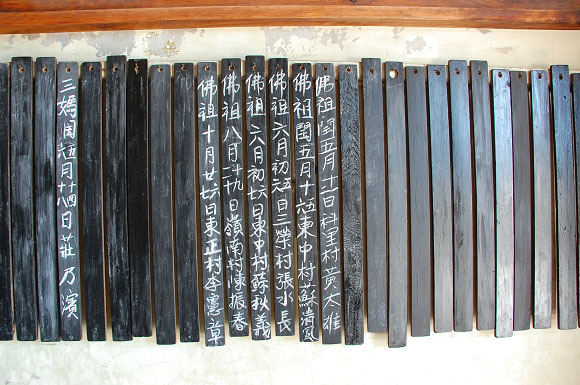 佛祖閏五月十一日科里村黃太雄
佛祖閏五月十六日東中村蘇清風
佛祖六月初五日三榮村張水長
佛祖六月初六日東中村蘇秋義
佛祖八月二十九日嶺南村陳振春
佛祖十月廿六日東正村李憲章
三媽閏五月十四日莊乃濱